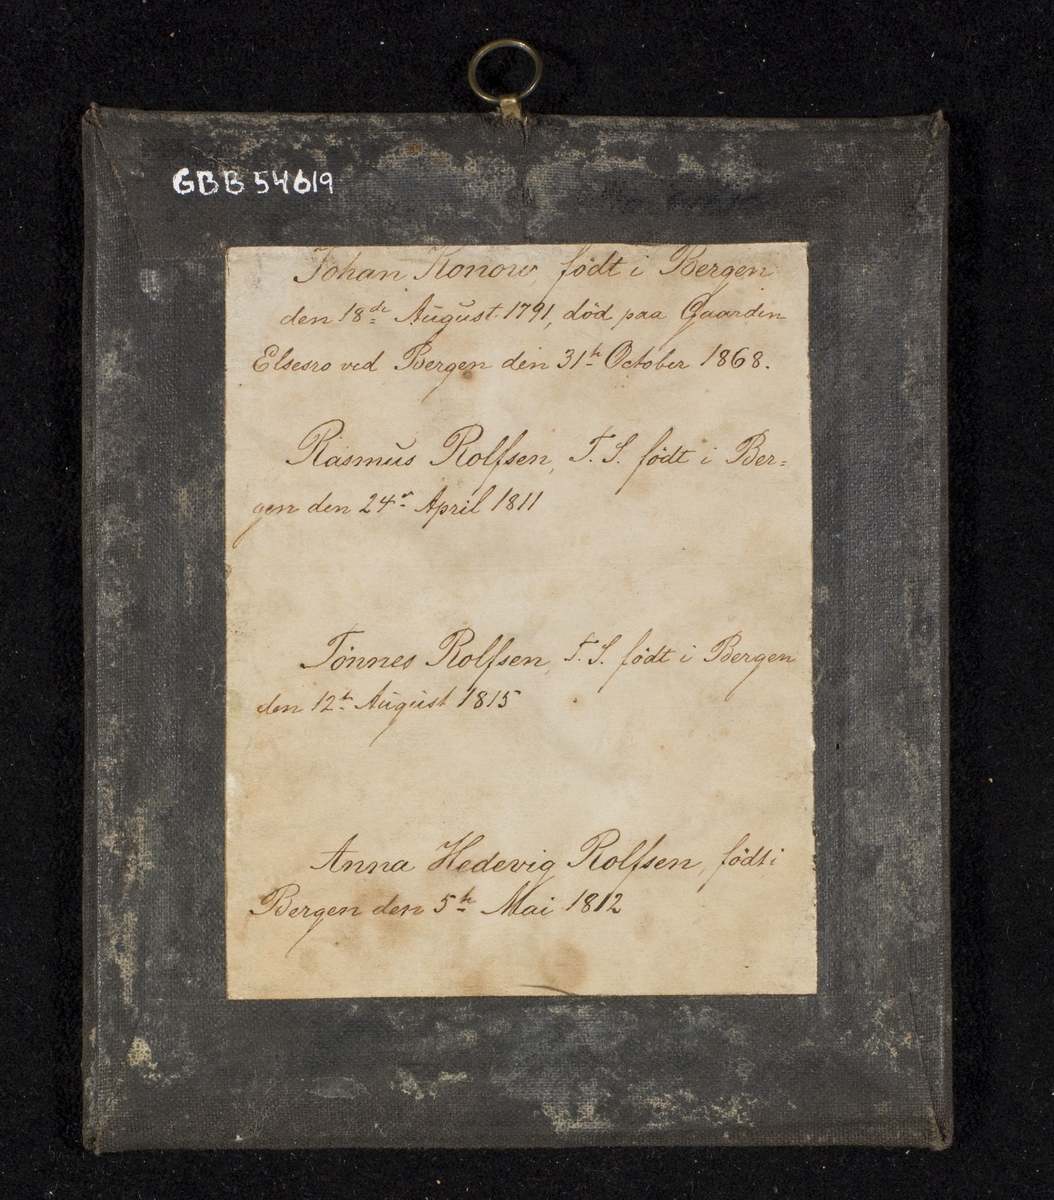 GBB 54619
Johan Konow, födt i Bergen
den 18de August 1791, död paa Gaarden
Elsesro ved Bergen den 31te October 1868.
Rasmus Rolfsen, T. S. födt i Ber=
gen den 24de April 1811
Tönnes Rolfsen, T. S. födt i Bergen
den 12te August 1815
Anna Hedevig Rolfsen, födt i
Bergen den 5te Mai 1812